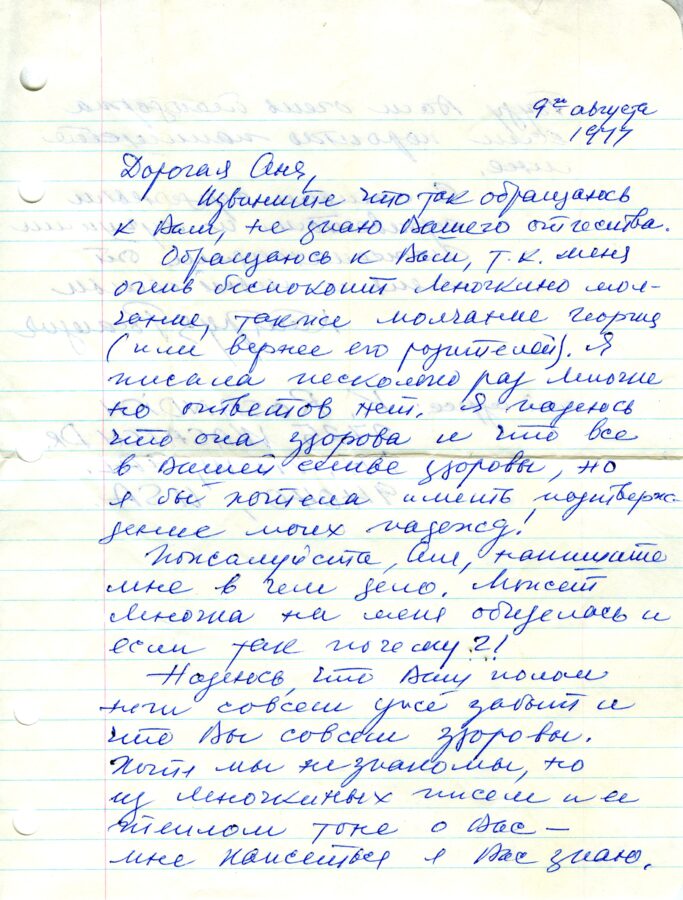 9го августа
1977
Дорогая Аня,
Извините что так обращаюсь
к Вам, не знаю Вашего отчества.
Обращаюсь к Вам, т.к. меня
очень беспокоит Люночкино мол-
чание, также молчание Георга
(или вернее его родителей). Я
писала несколько раз Люночке
но ответов нет. Я надеюсь
что она здорова и что все
в Вашей семье здоровы, но
я бы хотела иметь подтверж-
дение моих надежд!
Пожалуйста, Аня, напишите
мне в чем дело. Может
Люночка на меня обиделась и
если так почему?!
Надеюсь, что Ваш полом
ноги совсем уже забыт и
что Вы совсем здоровы.
Хотя мы не знакомы, но
из Люночкиных писем и ее
теплом тоне о Вас —
мне кажеться я Вас знаю.